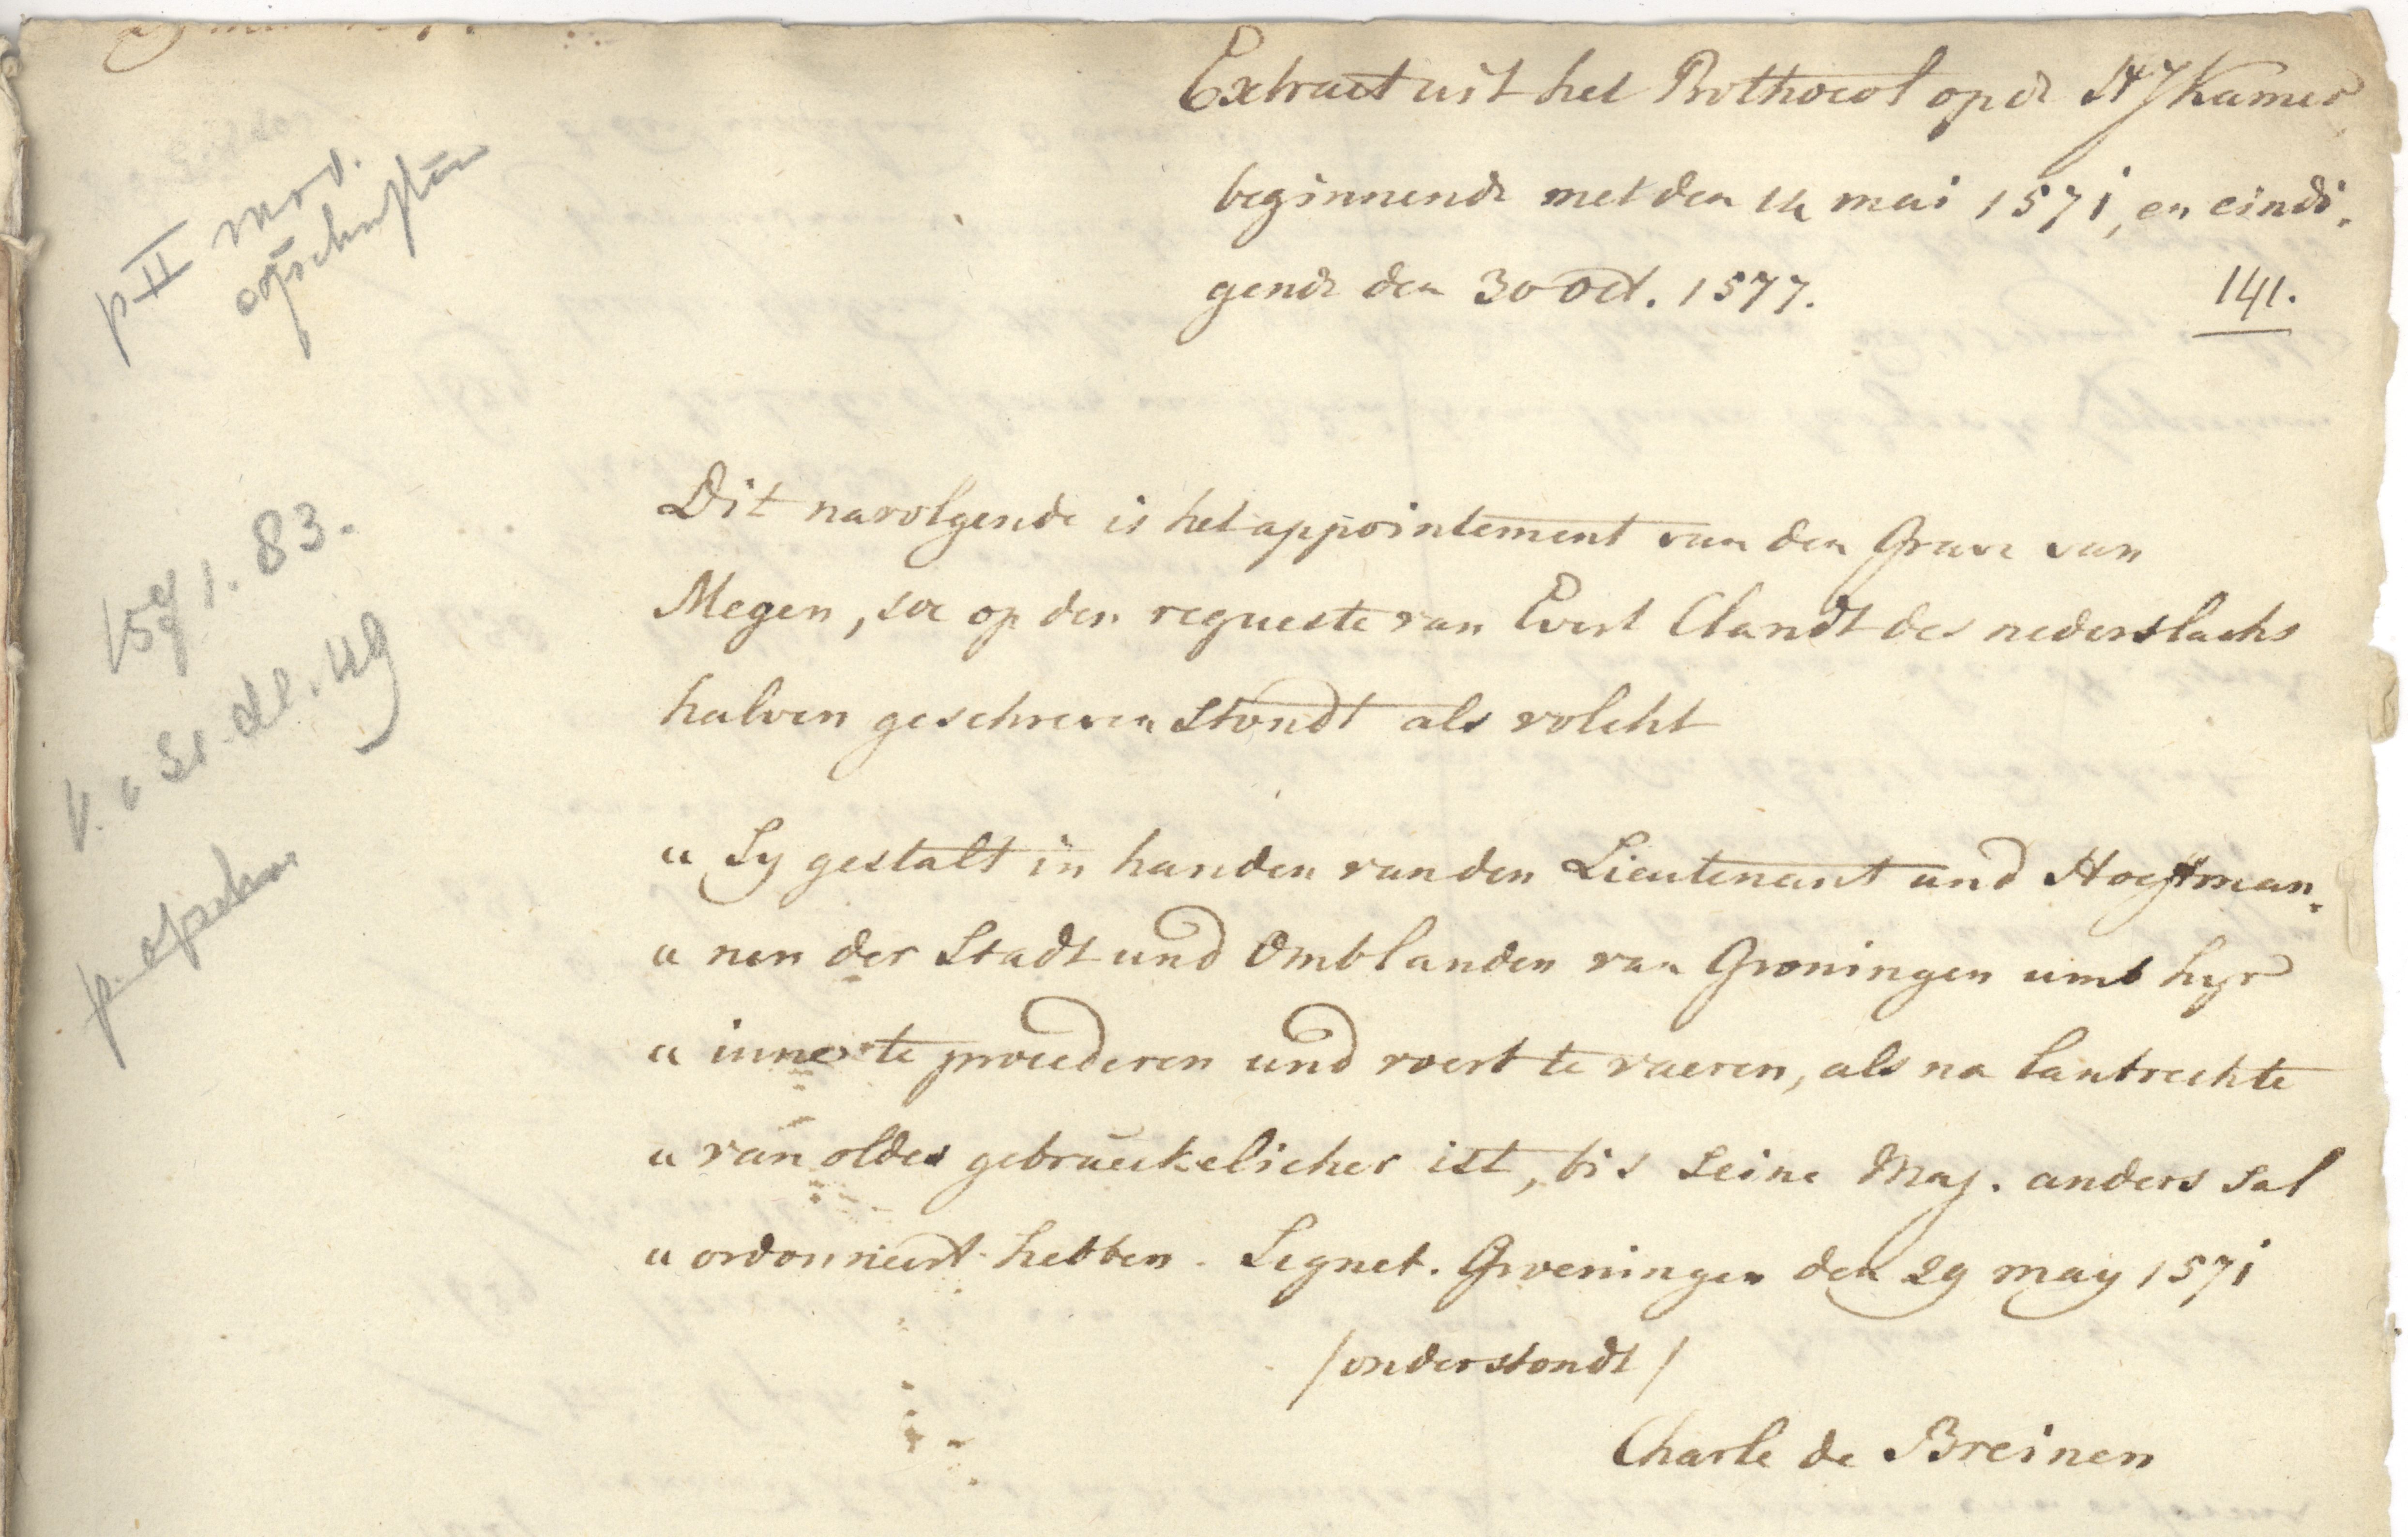 Extract uit het Prothocol op de HJKamer
beginnende met den 14 mai 1571, en eindi-
gende den 30 Oct. 1577.
141.
p II mod.
opschriften
Dit navolgende is het appointement van den Grave van
Megen, soe op den requeste van Evert Clandt des nederslachs
halven geschreven stondt als volcht
1. 83.
" Sy gestalt in handen van den Lieutenant und Hoeftman-
" nen der Stadt und Omblanden van Groningen umb hyr
" inne te procederen und voert te vaeren, als na lantrechte
" van oldes gebrueckelicher ist, bis seine Maj. anders sal
" ordonneert hebben. Signet. Groeningen den 29 may 1571
/onderstondt/
Charle de Breinen